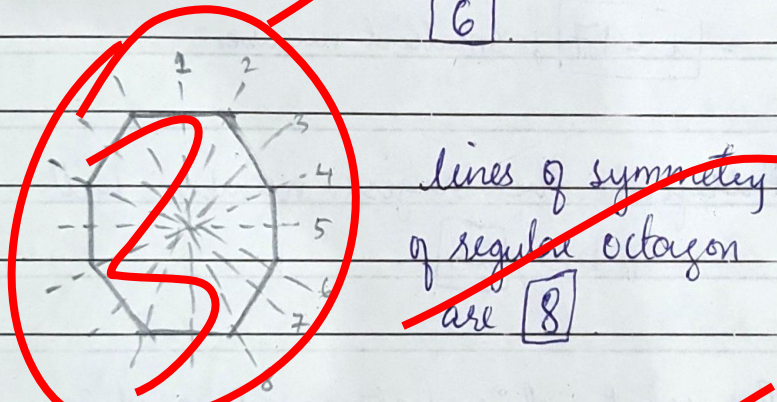 6
1 2
3
4
5
6
7
8
lines of symmetry
of regular octagon
are 8